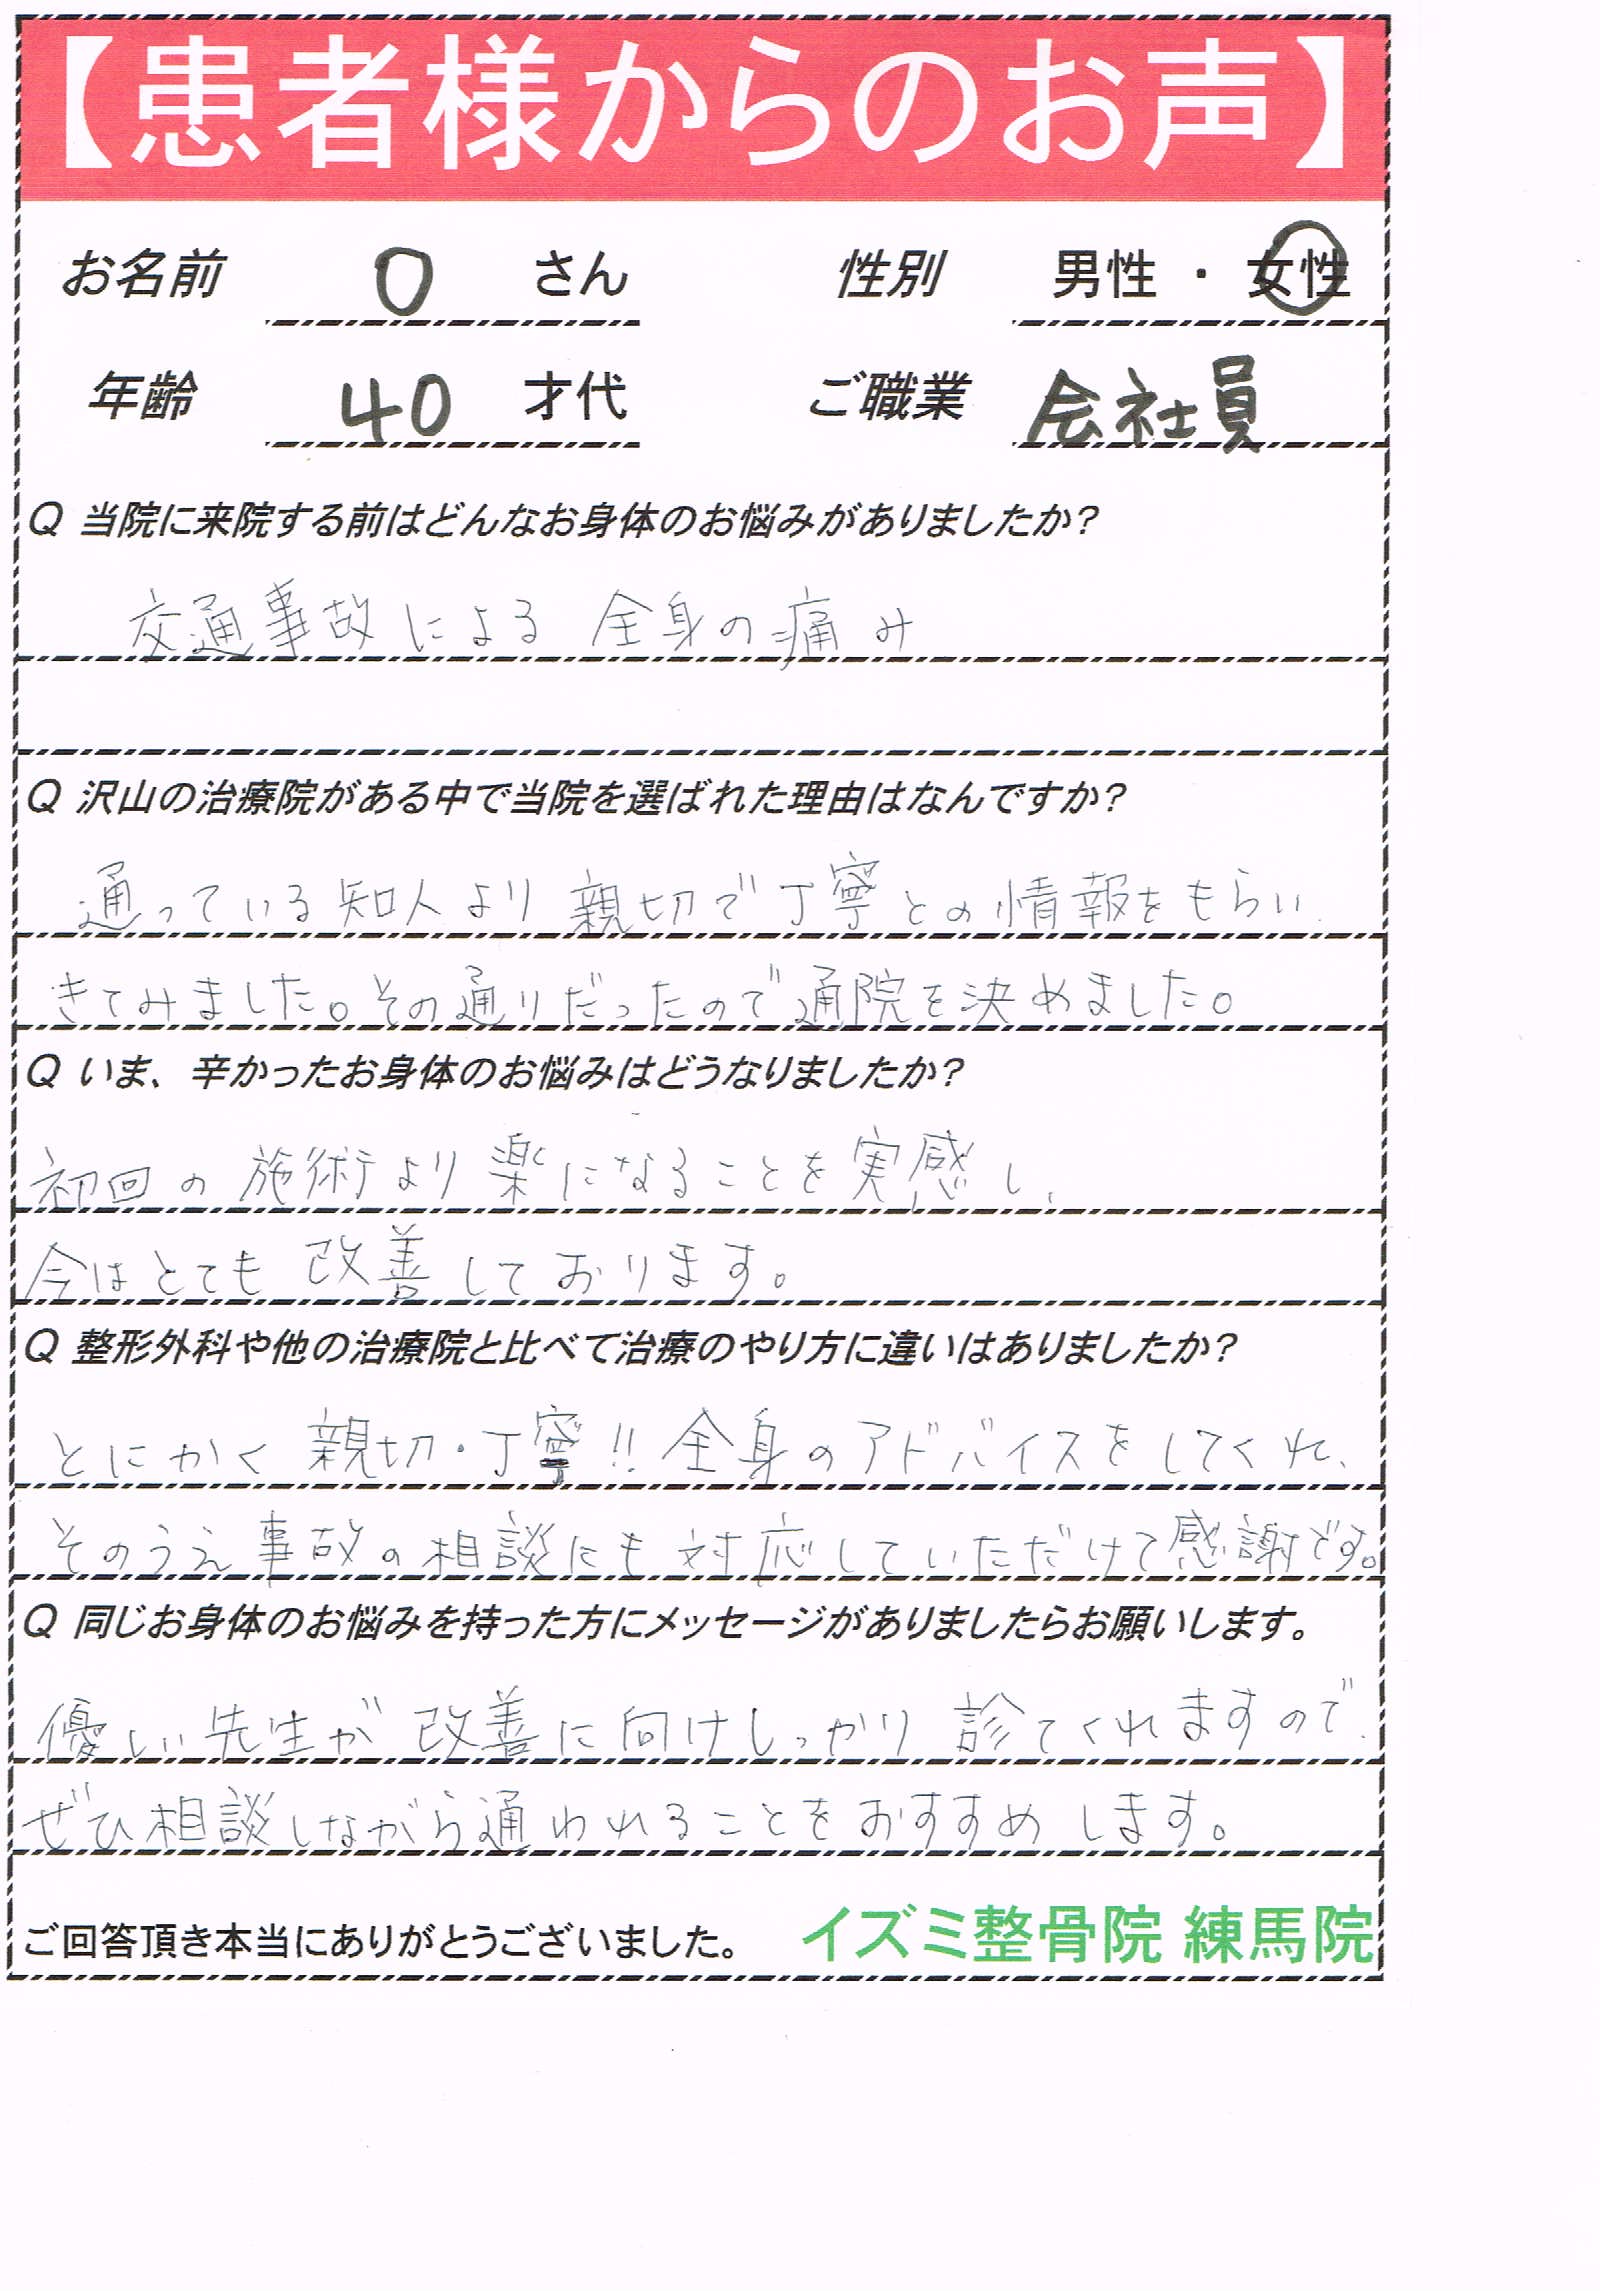 【患者様からのお声】
お名前 O さん 性別 男性 ・ 女性
年齢 40 才代 ご職業 会社員
Q 当院に来院する前はどんなお身体のお悩みがありましたか？
交通事故による 全身の痛み
Q 沢山の治療院がある中で当院を選ばれた理由はなんですか？
通っている知人より 親切で丁寧との情報をもらい、
きてみました。その通りだったので通院を決めました。
Q いま、辛かったお身体のお悩みはどうなりましたか？
初回の施術より楽になることを実感し、
今はとても改善しております。
Q 整形外科や他の治療院と比べて治療のやり方に違いはありましたか？
とにかく親切・丁寧!! 全身のアドバイスをしてくれ、
そのうえ事故の相談にも対応していただけて感謝です。
Q 同じお身体のお悩みを持った方にメッセージがありましたらお願いします。
優しい先生が改善に向けしっかり診てくれますので、
ぜひ相談しながら通われることをおすすめします。
ご回答頂き本当にありがとうございました。 イズミ整骨院 練馬院